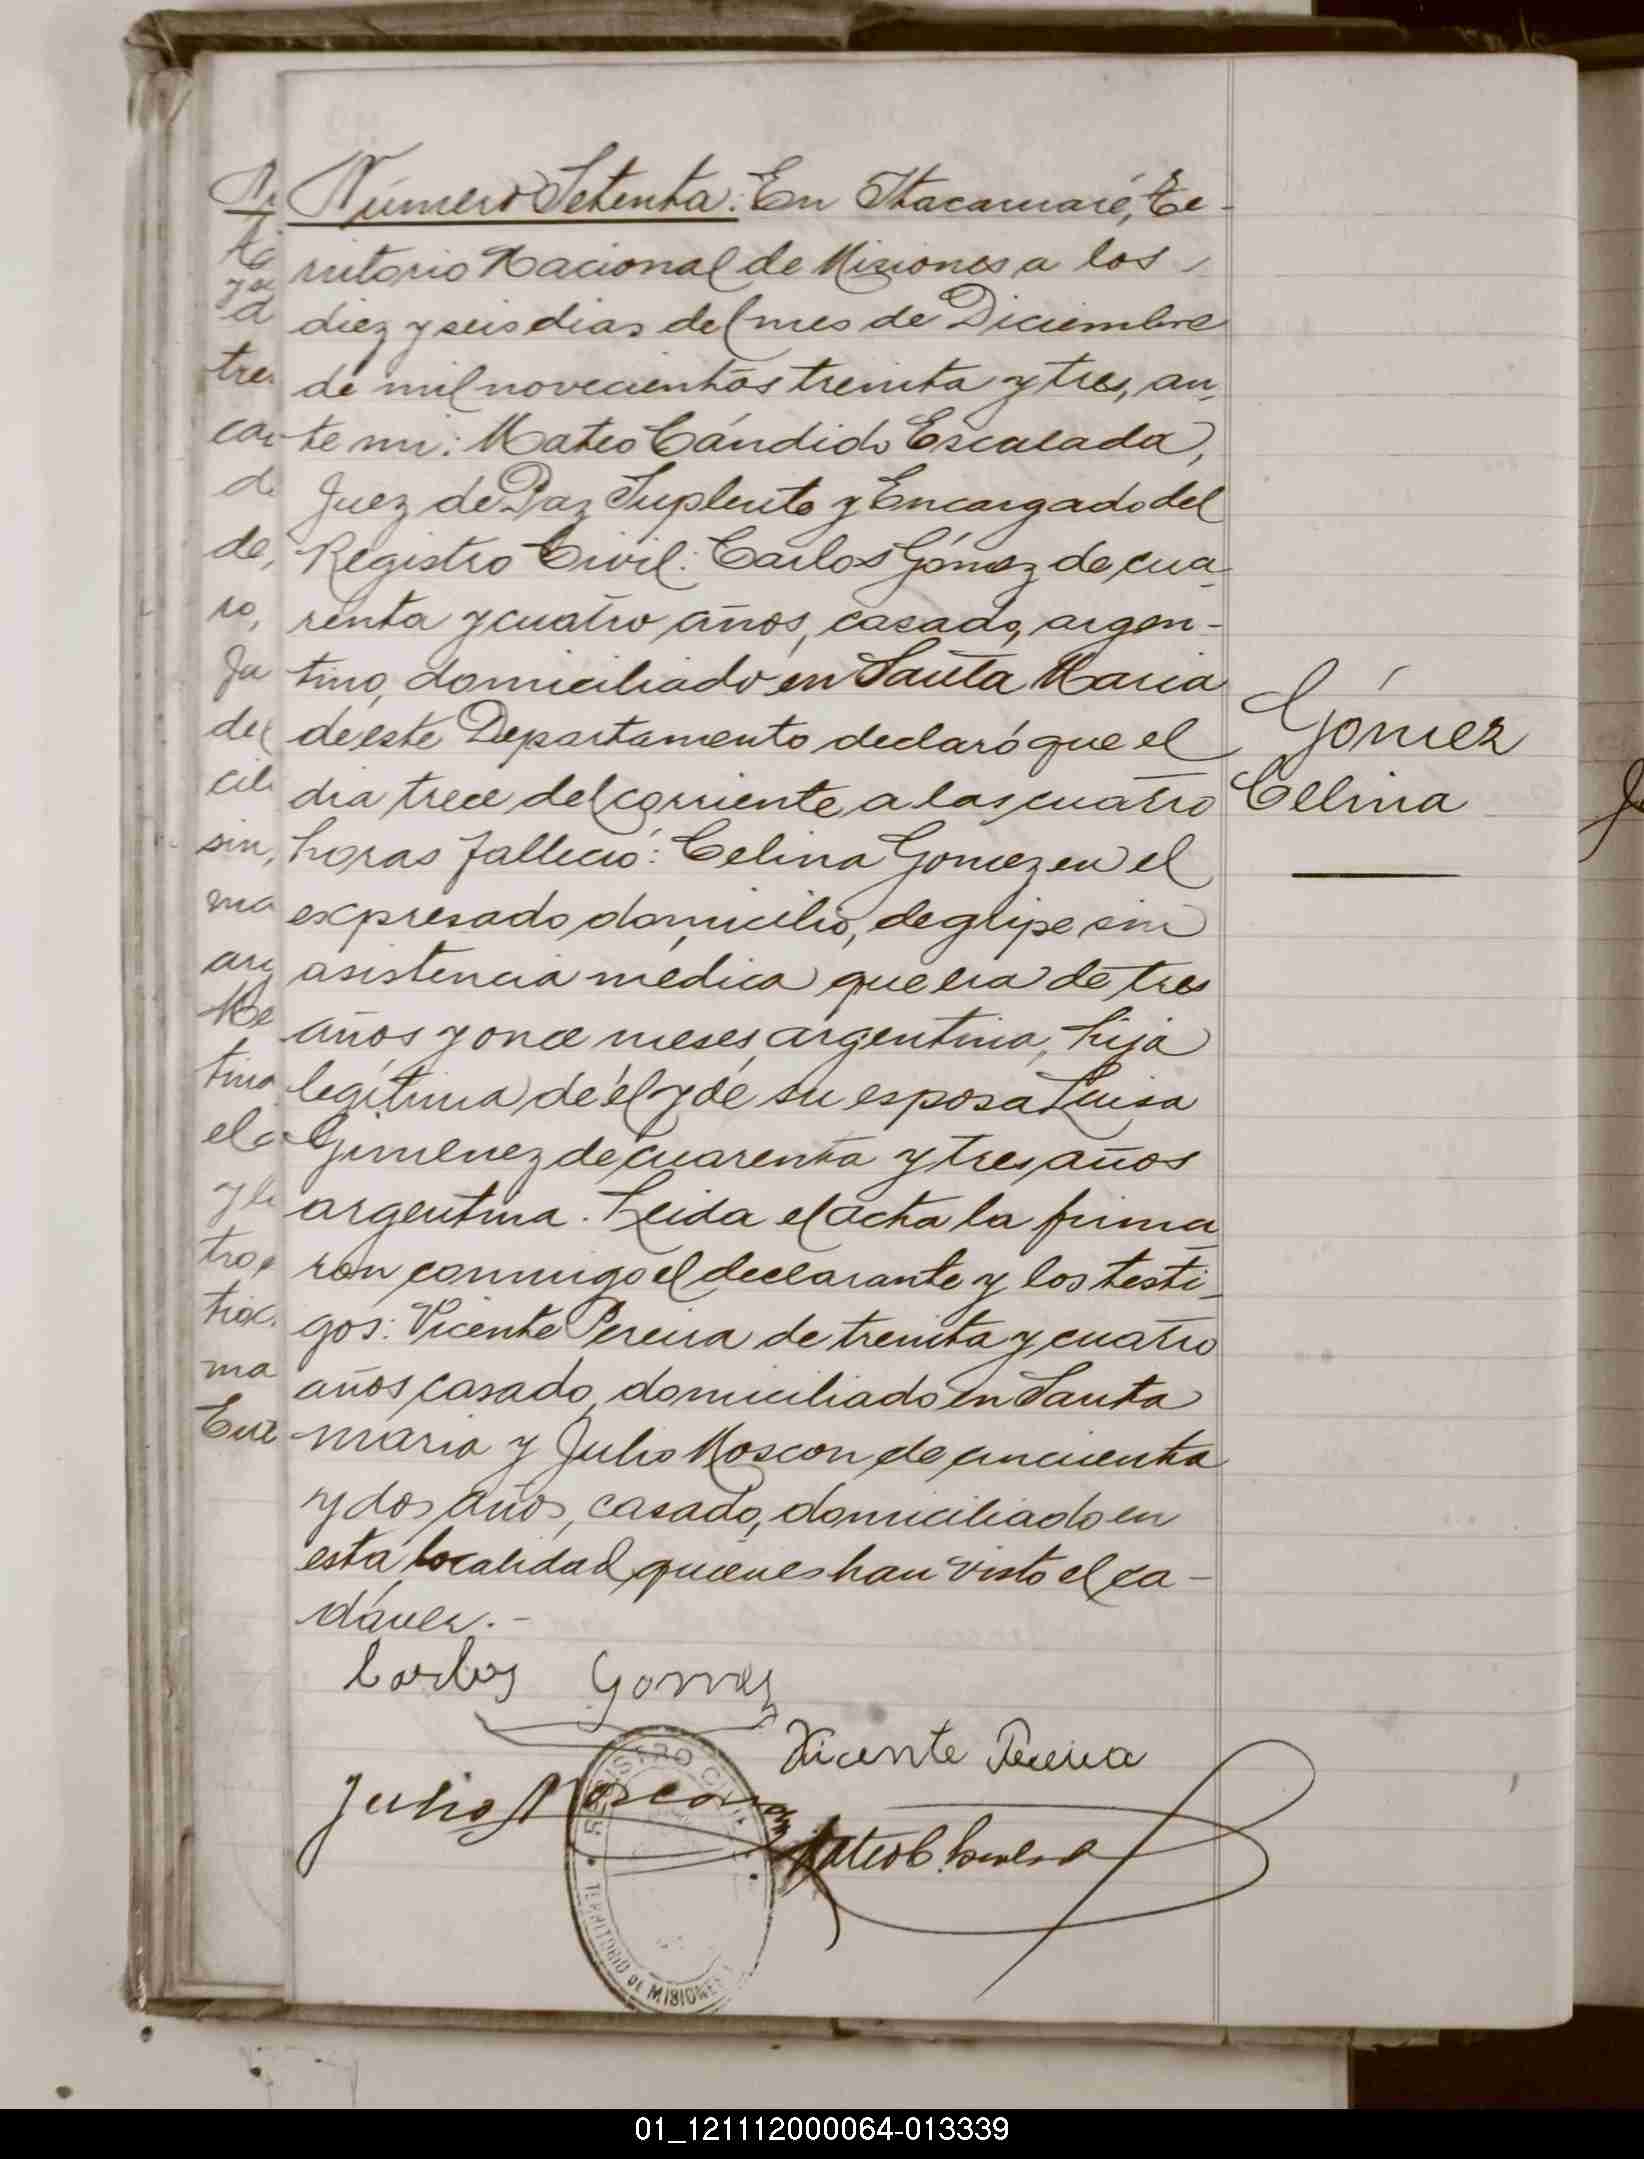 Número Setenta: En Itacaruaré, Te-
rritorio Nacional de Misiones a los
diez y seis dias del mes de Diciembre
de mil novecientos treinta y tres, an-
te mi: Mateo Cándido Escalada,
Juez de Paz Suplente y Encargado del
Registro Civil: Carlos Gómez de cua-
renta y cuatro años, casado, argen-
tino, domiciliado en Santa Maria
de este Departamento declaró que el
dia trece del corriente a las cuatro
horas falleció: Celina Gomez en el
expresado domicilio, de gripe sin
asistencia médica que era de tres
años y once meses, argentina, hija
legítima de él y de su esposa Luisa
Gimenez de cuarenta y tres años
argentina. Leida el acta la firma-
ron conmigo el declarante y los testi-
gos: Vicente Pereira de treinta y cuatro
años casado, domiciliado en Santa
maria y Julio Moscon de cincuenta
y dos años, casado, domiciliado en
esta localidad quienes han visto el ca-
dáver.-
Gómez
Celina
Carlos Gomez
Vicente Pereira
Julio Moscon
Mateo C. Escalada
REGISTRO CIVIL
TERRITORIO DE MISIONES
tres
de,
ro,
del
sin,
ma
el
ma
01_121112000064-013339